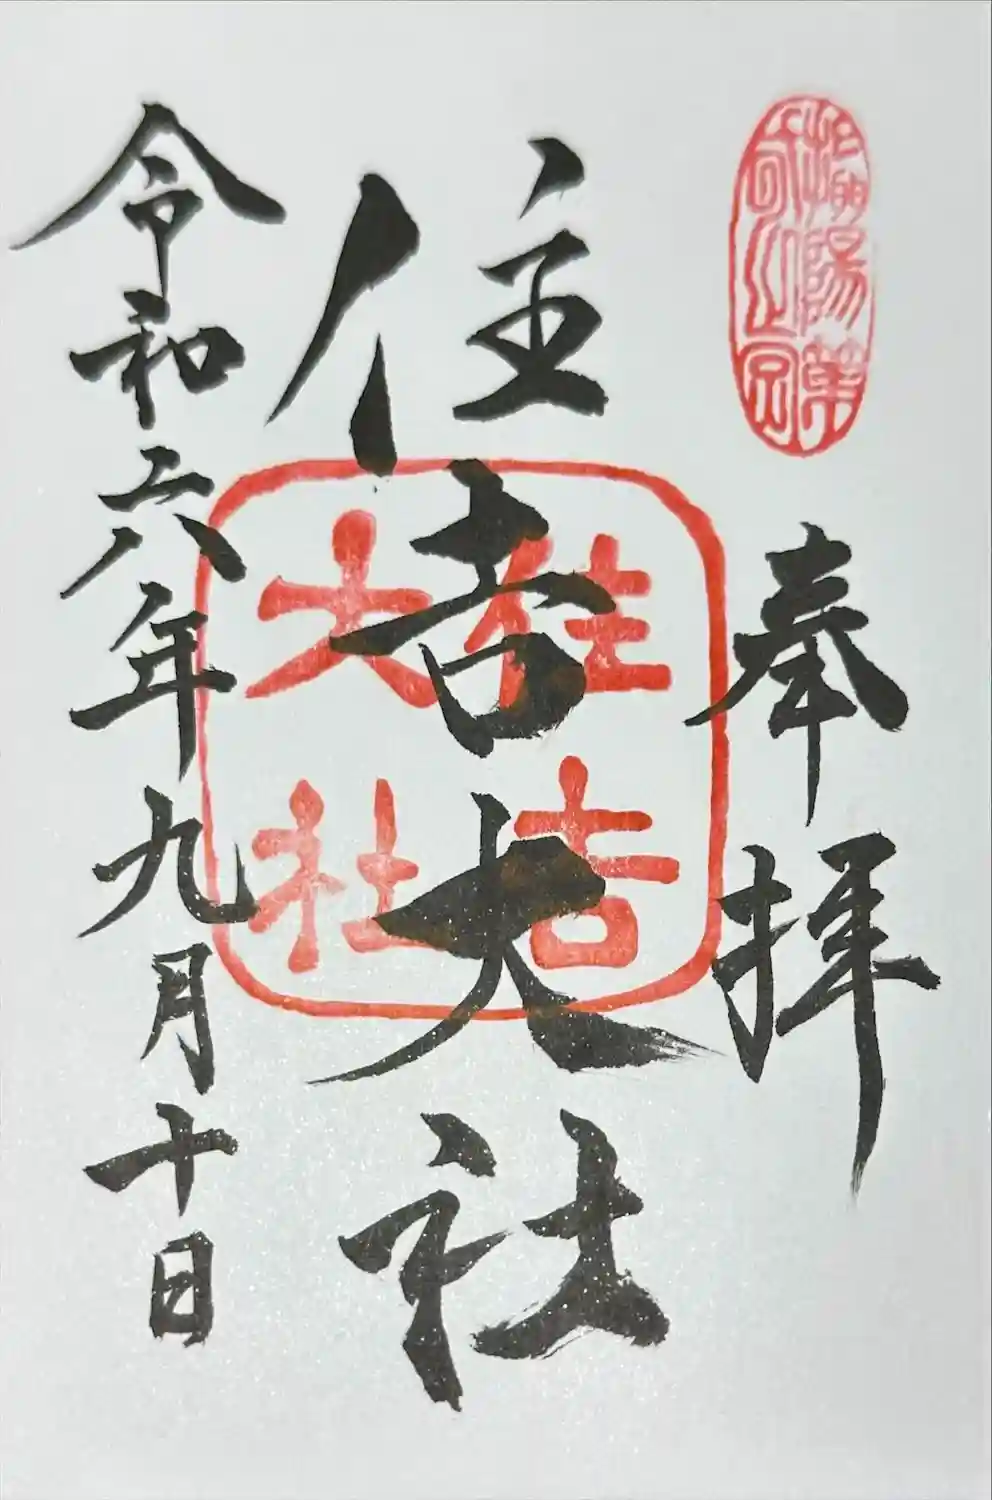 奉拝
住吉大社
住吉
大社
令和六年九月十日